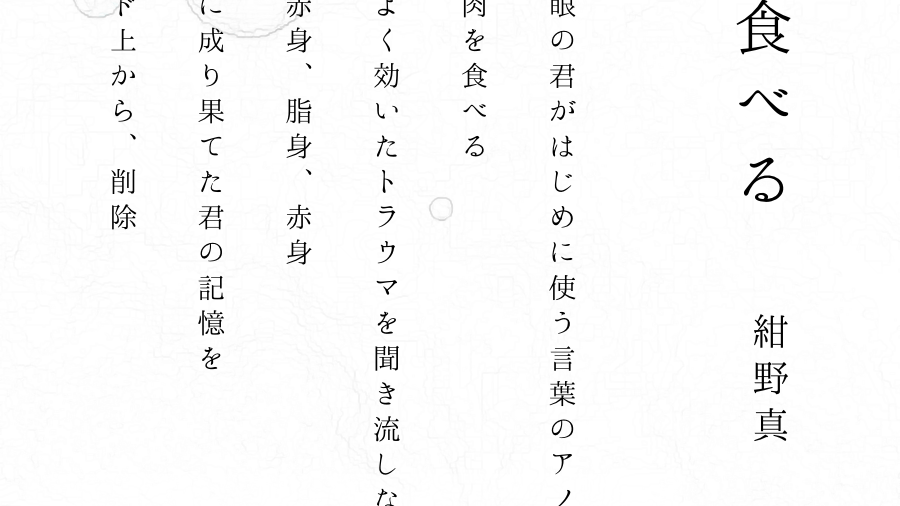 食べる
紺野真
眼の君がはじめに使う言葉のア
肉を食べる
よく効いたトラウマを聞き流しな
赤身、脂身、赤身
に成り果てた君の記憶を
上から、削除